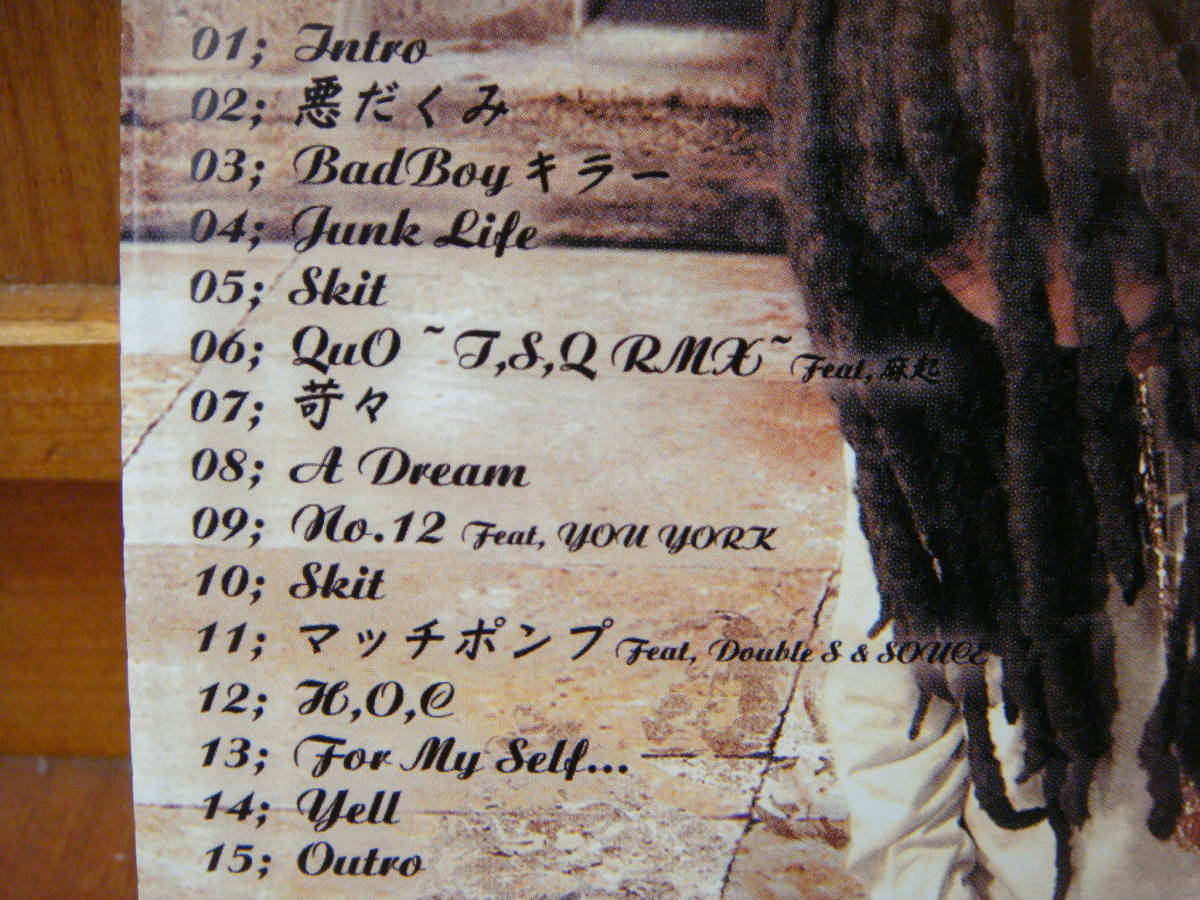 01; Intro
02; 悪だくみ
03; BadBoyキラー
04; Junk Life
05; Skit
06; QuO ~T,S,Q RMX~ Feat, 麻起
07; 苛々
08; A Dream
09; No.12 Feat, YOU YORK
10; Skit
11; マッチポンプ Feat, Double S & SOUCE
12; H,O,C
13; For My Self...
14; Yell
15; Outro